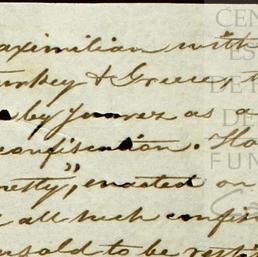 aximilian with
urkey & Greece,
by Juarez as a
confiscation.
etty", enacted on
all such confis
unsold to be restit
CEN
ES
DE
DE
FUN